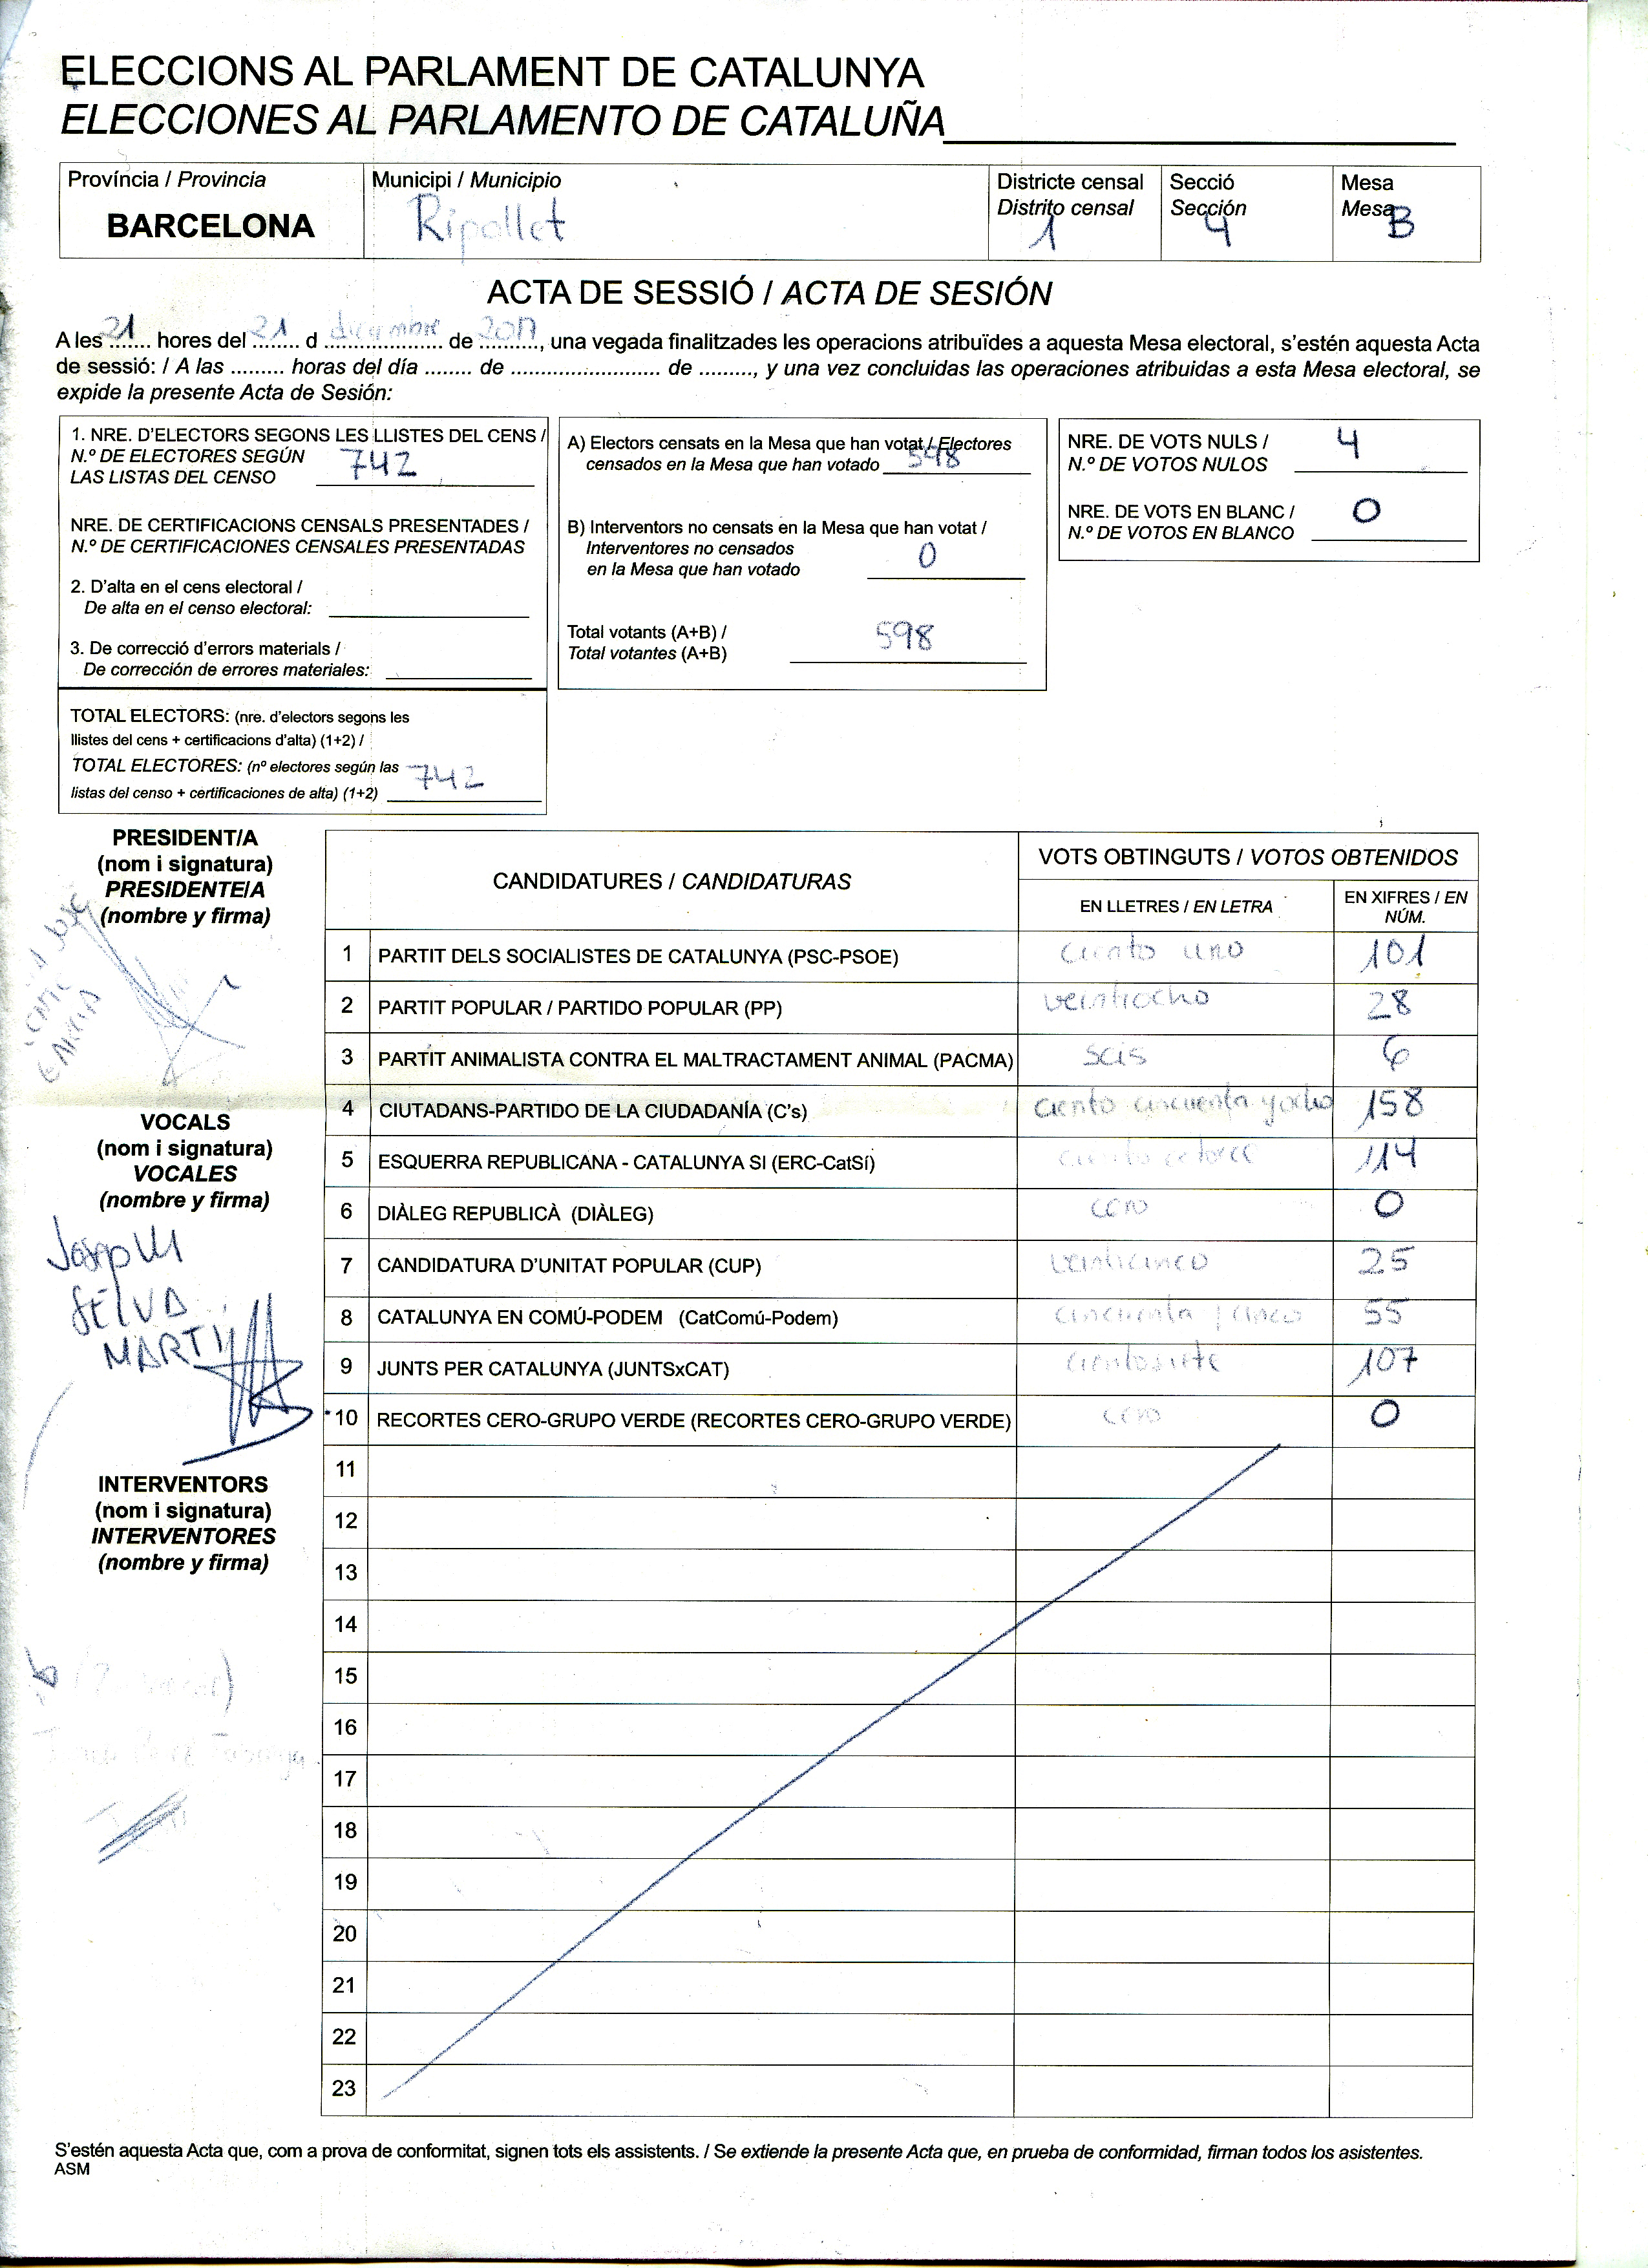 ELECCIONS AL PARLAMENT DE CATALUNYA
ELECCIONES AL PARLAMENTO DE CATALUÑA
Província / Provincia
BARCELONA
Municipi / Municipio
Ripollet
Districte censal
Distrito censal
1
Secció
Sección
4
Mesa
Mesa
B
ACTA DE SESSIÓ / ACTA DE SESIÓN
A les 21 hores del 21 d diciembre de 2017, una vegada finalitzades les operacions atribuïdes a aquesta Mesa electoral, s'estén aquesta Acta
de sessió: / A las ......... horas del día ........ de .......................... de ........., y una vez concluidas las operaciones atribuidas a esta Mesa electoral, se
expide la presente Acta de Sesión:
1. NRE. D'ELECTORS SEGONS LES LLISTES DEL CENS /
N.º DE ELECTORES SEGÚN
LAS LISTAS DEL CENSO 742
NRE. DE CERTIFICACIONS CENSALS PRESENTADES /
N.º DE CERTIFICACIONES CENSALES PRESENTADAS
2. D'alta en el cens electoral /
De alta en el censo electoral:
3. De correcció d'errors materials /
De corrección de errores materiales:
TOTAL ELECTORS: (nre. d'electors segons les
llistes del cens + certificacions d'alta) (1+2) /
TOTAL ELECTORES: (nº electores según las
listas del censo + certificaciones de alta) (1+2) 742
A) Electors censats en la Mesa que han votat / Electores
censados en la Mesa que han votado 598
B) Interventors no censats en la Mesa que han votat /
Interventores no censados
en la Mesa que han votado 0
Total votants (A+B) /
Total votantes (A+B) 598
NRE. DE VOTS NULS /
N.º DE VOTOS NULOS 4
NRE. DE VOTS EN BLANC /
N.º DE VOTOS EN BLANCO 0
PRESIDENT/A
(nom i signatura)
PRESIDENTE/A
(nombre y firma)
JOSE
GARCIA
VOCALS
(nom i signatura)
VOCALES
(nombre y firma)
Josep M
SELVA
MARTI
INTERVENTORS
(nom i signatura)
INTERVENTORES
(nombre y firma)
CANDIDATURES / CANDIDATURAS
VOTS OBTINGUTS / VOTOS OBTENIDOS
EN LLETRES / EN LETRA
EN XIFRES / EN
NÚM.
1 PARTIT DELS SOCIALISTES DE CATALUNYA (PSC-PSOE) ciento uno 101
2 PARTIT POPULAR / PARTIDO POPULAR (PP) veintiocho 28
3 PARTIT ANIMALISTA CONTRA EL MALTRACTAMENT ANIMAL (PACMA) seis 6
4 CIUTADANS-PARTIDO DE LA CIUDADANÍA (C's) ciento cincuenta y ocho 158
5 ESQUERRA REPUBLICANA - CATALUNYA SI (ERC-CatSí) ciento catorce 114
6 DIÀLEG REPUBLICÀ (DIÀLEG) cero 0
7 CANDIDATURA D'UNITAT POPULAR (CUP) veinticinco 25
8 CATALUNYA EN COMÚ-PODEM (CatComú-Podem) cincuenta y cinco 55
9 JUNTS PER CATALUNYA (JUNTSxCAT) ciento siete 107
10 RECORTES CERO-GRUPO VERDE (RECORTES CERO-GRUPO VERDE) cero 0
11
12
13
14
15
16
17
18
19
20
21
22
23
S'estén aquesta Acta que, com a prova de conformitat, signen tots els assistents. / Se extiende la presente Acta que, en prueba de conformidad, firman todos los asistentes.
ASM